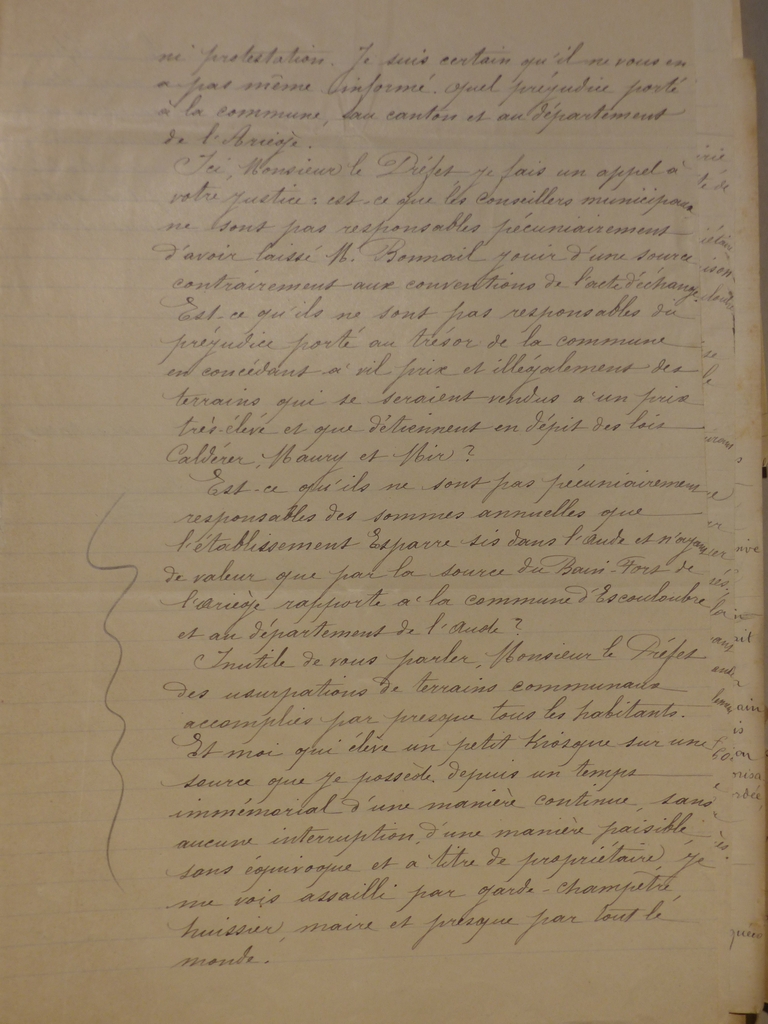 ni protestation. Je suis certain qu'il ne vous en
a pas même informé. Quel préjudice porté
à la commune, au canton et au département
de l'Ariège.
Ici, Monsieur le Préfet je fais un appel à
votre justice : est-ce que les conseillers municipaux
ne sont pas responsables pécuniairement
d'avoir laissé M. Bonnail jouir d'une source
contrairement aux conventions de l'acte d'échange.
Est-ce qu'ils ne sont pas responsables du
préjudice porté au trésor de la commune
en concédant à vil prix et illégalement des
terrains qui se seraient vendus à un prix
très-élevé et que détiennent en dépit des lois
Caldérer, Maury et Mir ?
Est-ce qu'ils ne sont pas pécuniairement
responsables des sommes annuelles que
l'établissement Esparre sis dans l'Aude et n'ayant
de valeur que par la source du Bain-Fort de
l'Ariège rapporte à la commune d'Escouloubre
et au département de l'Aude ?
Inutile de vous parler, Monsieur le Préfet
des usurpations de terrains communaux
accomplies par presque tous les habitants.
Et moi qui élève un petit Kiosque sur une
source que je possède depuis un temps
immémorial d'une manière continue, sans
aucune interruption, d'une manière paisible
sans équivoque et à titre de propriétaire, je
me vois assailli par garde-champêtre,
huissier, maire et presque par tout le
monde.